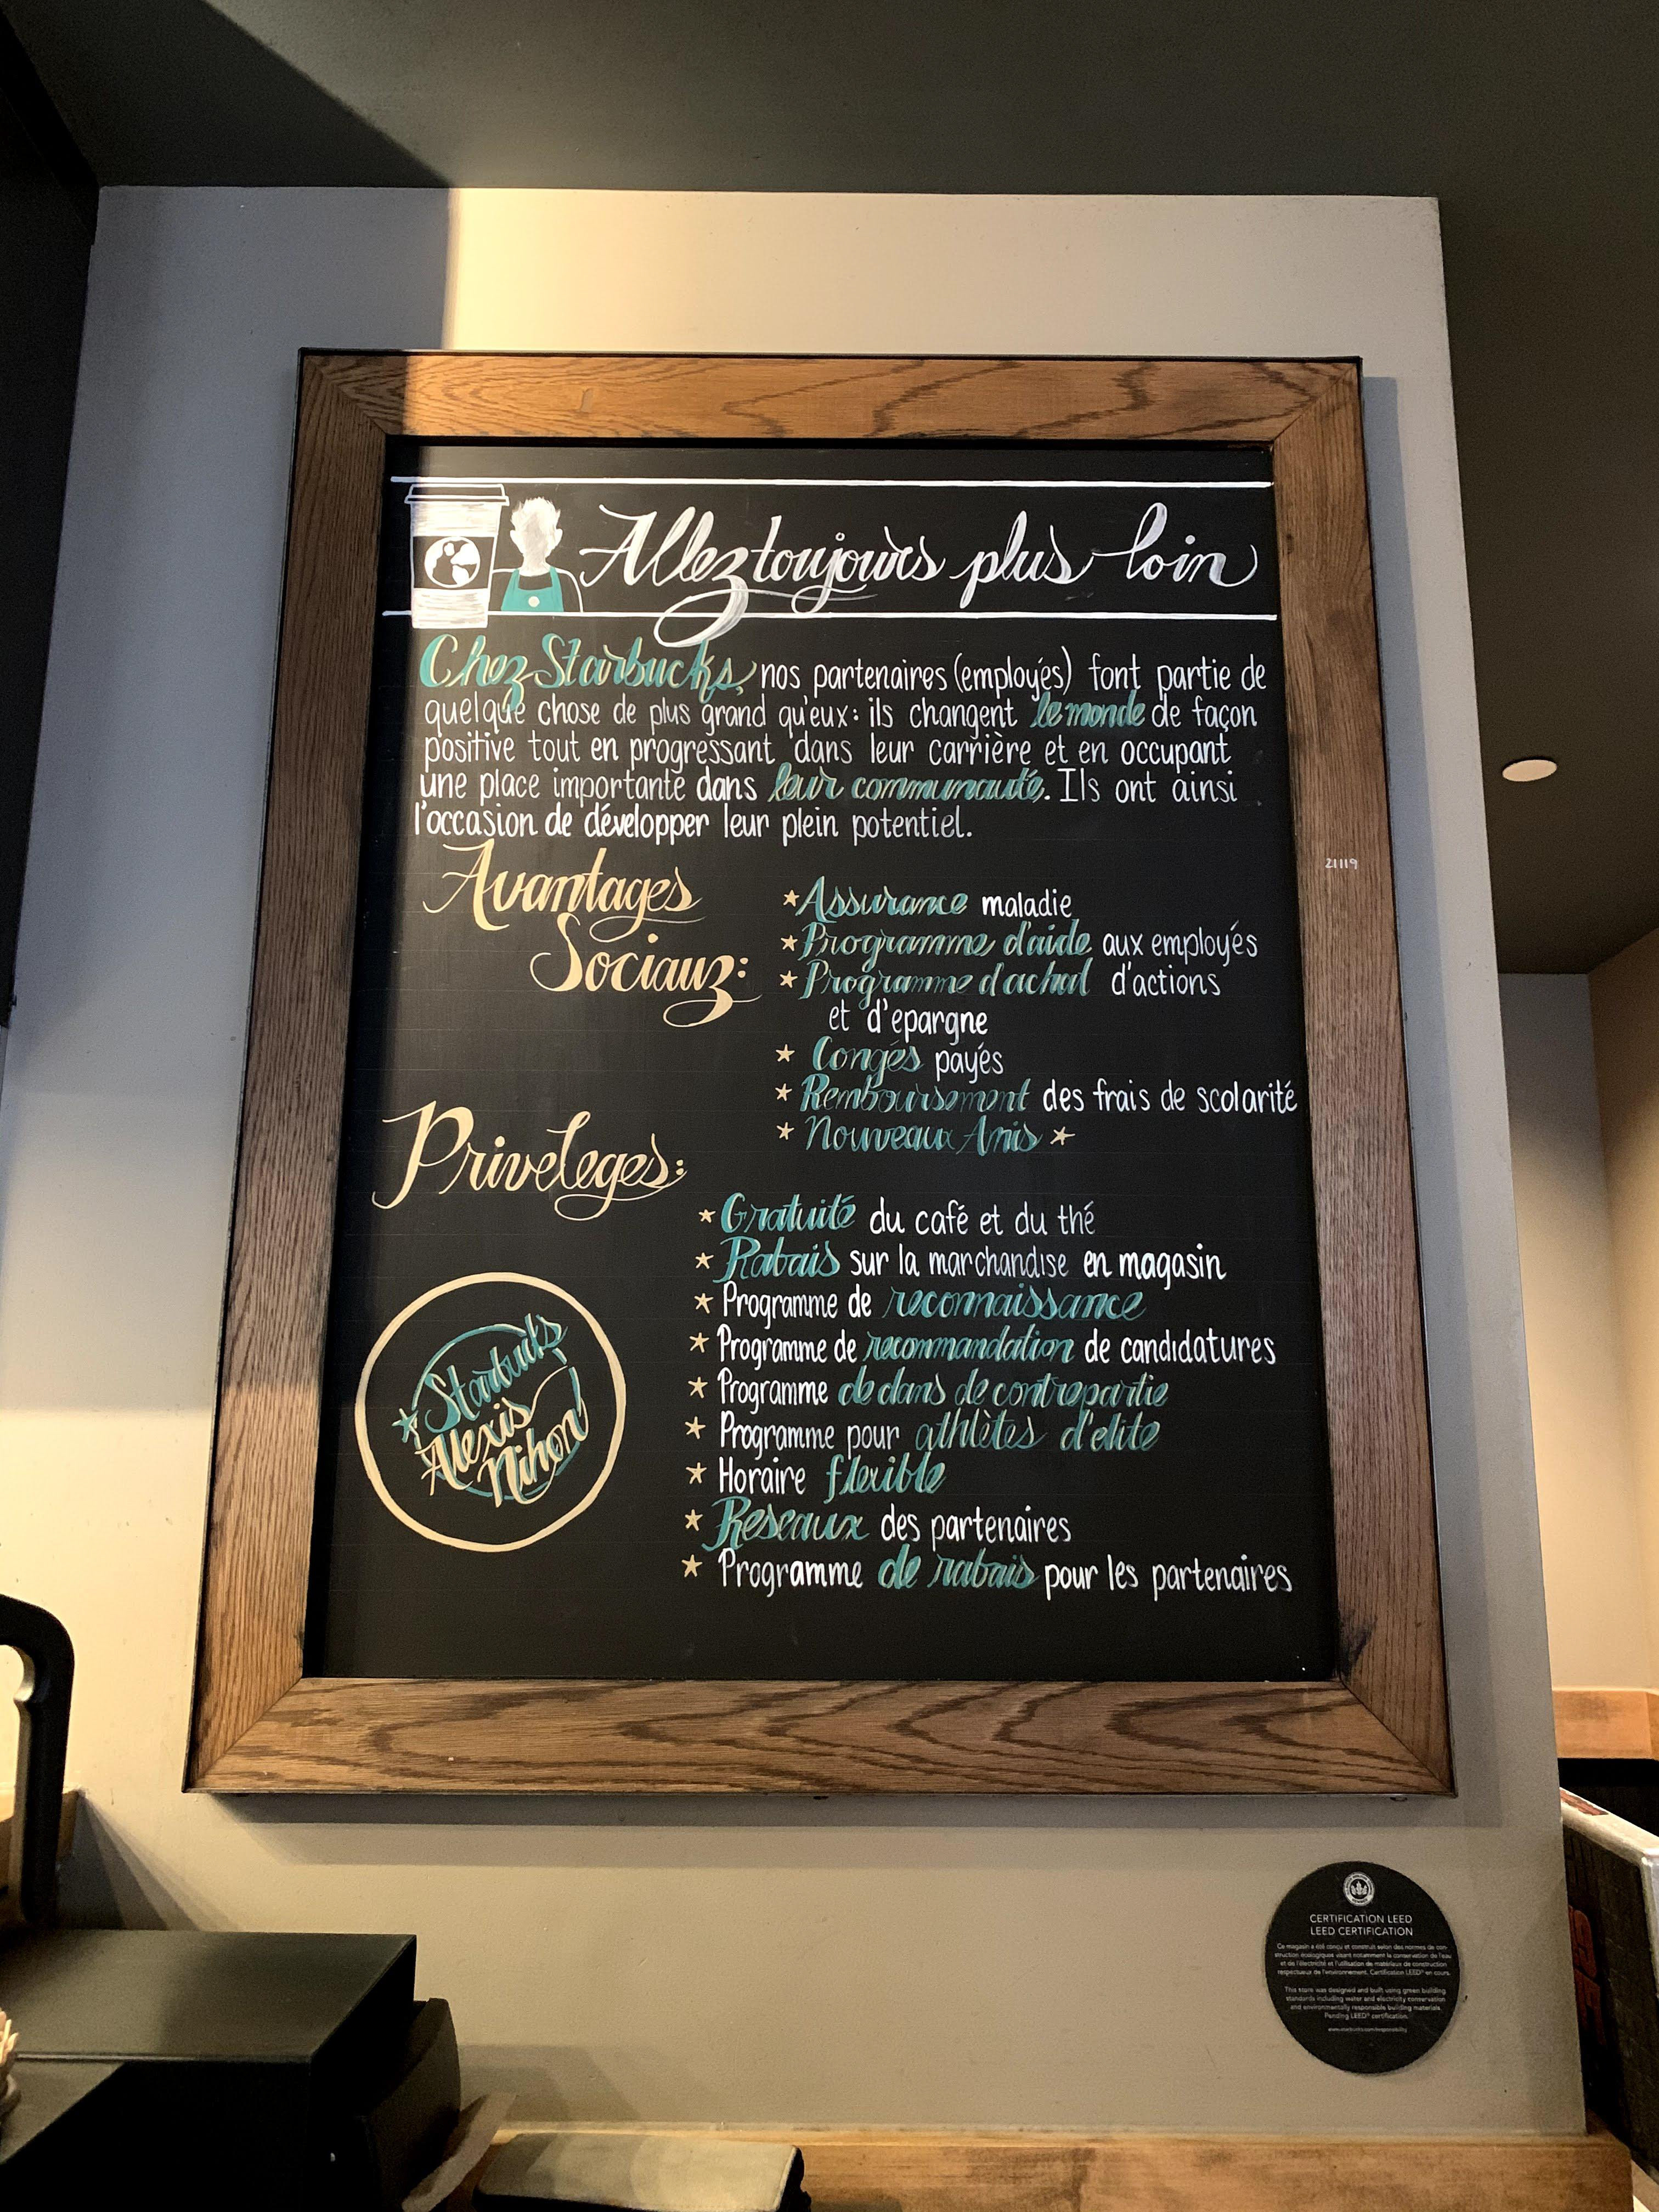 Allez toujours plus loin
Chez Starbucks, nos partenaires (employés) font partie de
quelque chose de plus grand qu'eux: ils changent le monde de façon
positive tout en progressant dans leur carrière et en occupant
une place importante dans leur communauté. Ils ont ainsi
l'occasion de développer leur plein potentiel.
Avantages
Sociaux:
★ Assurance maladie
★ Programme d'aide aux employés
★ Programme d'achat d'actions
et d'epargne
★ Congés payés
★ Remboursement des frais de scolarité
★ Nouveaux Amis ★
Priveleges:
★ Gratuité du café et du thé
★ Rabais sur la marchandise en magasin
★ Programme de reconnaissance
★ Programme de recommandation de candidatures
★ Programme de dans de contrepartie
★ Programme pour athlètes d'elite
★ Horaire flexible
★ Reseaux des partenaires
★ Programme de rabais pour les partenaires
★ Starbucks
Alexis
Nihon
21119
CERTIFICATION LEED
LEED CERTIFICATION
Ce magasin a été conçu et construit selon des normes de con-
struction écologiques visant notamment la conservation de l'eau
et de l'électricité et l'utilisation de matériaux de construction
respectueux de l'environnement. Certification LEED® en cours.
This store was designed and built using green building
standards including water and electricity conservation
and environmentally responsible building materials.
Pending LEED® certification.
www.starbucks.com/responsibility